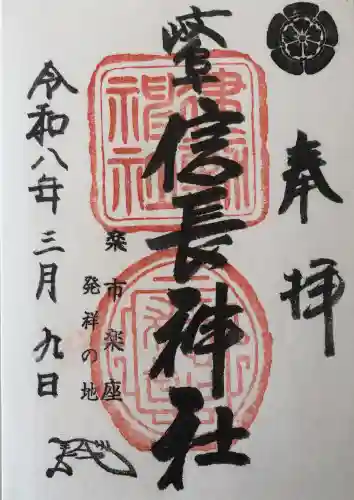 奉拝
岐阜信長神社
建勲
神社
楽市楽座
発祥の地
令和八年三月九日